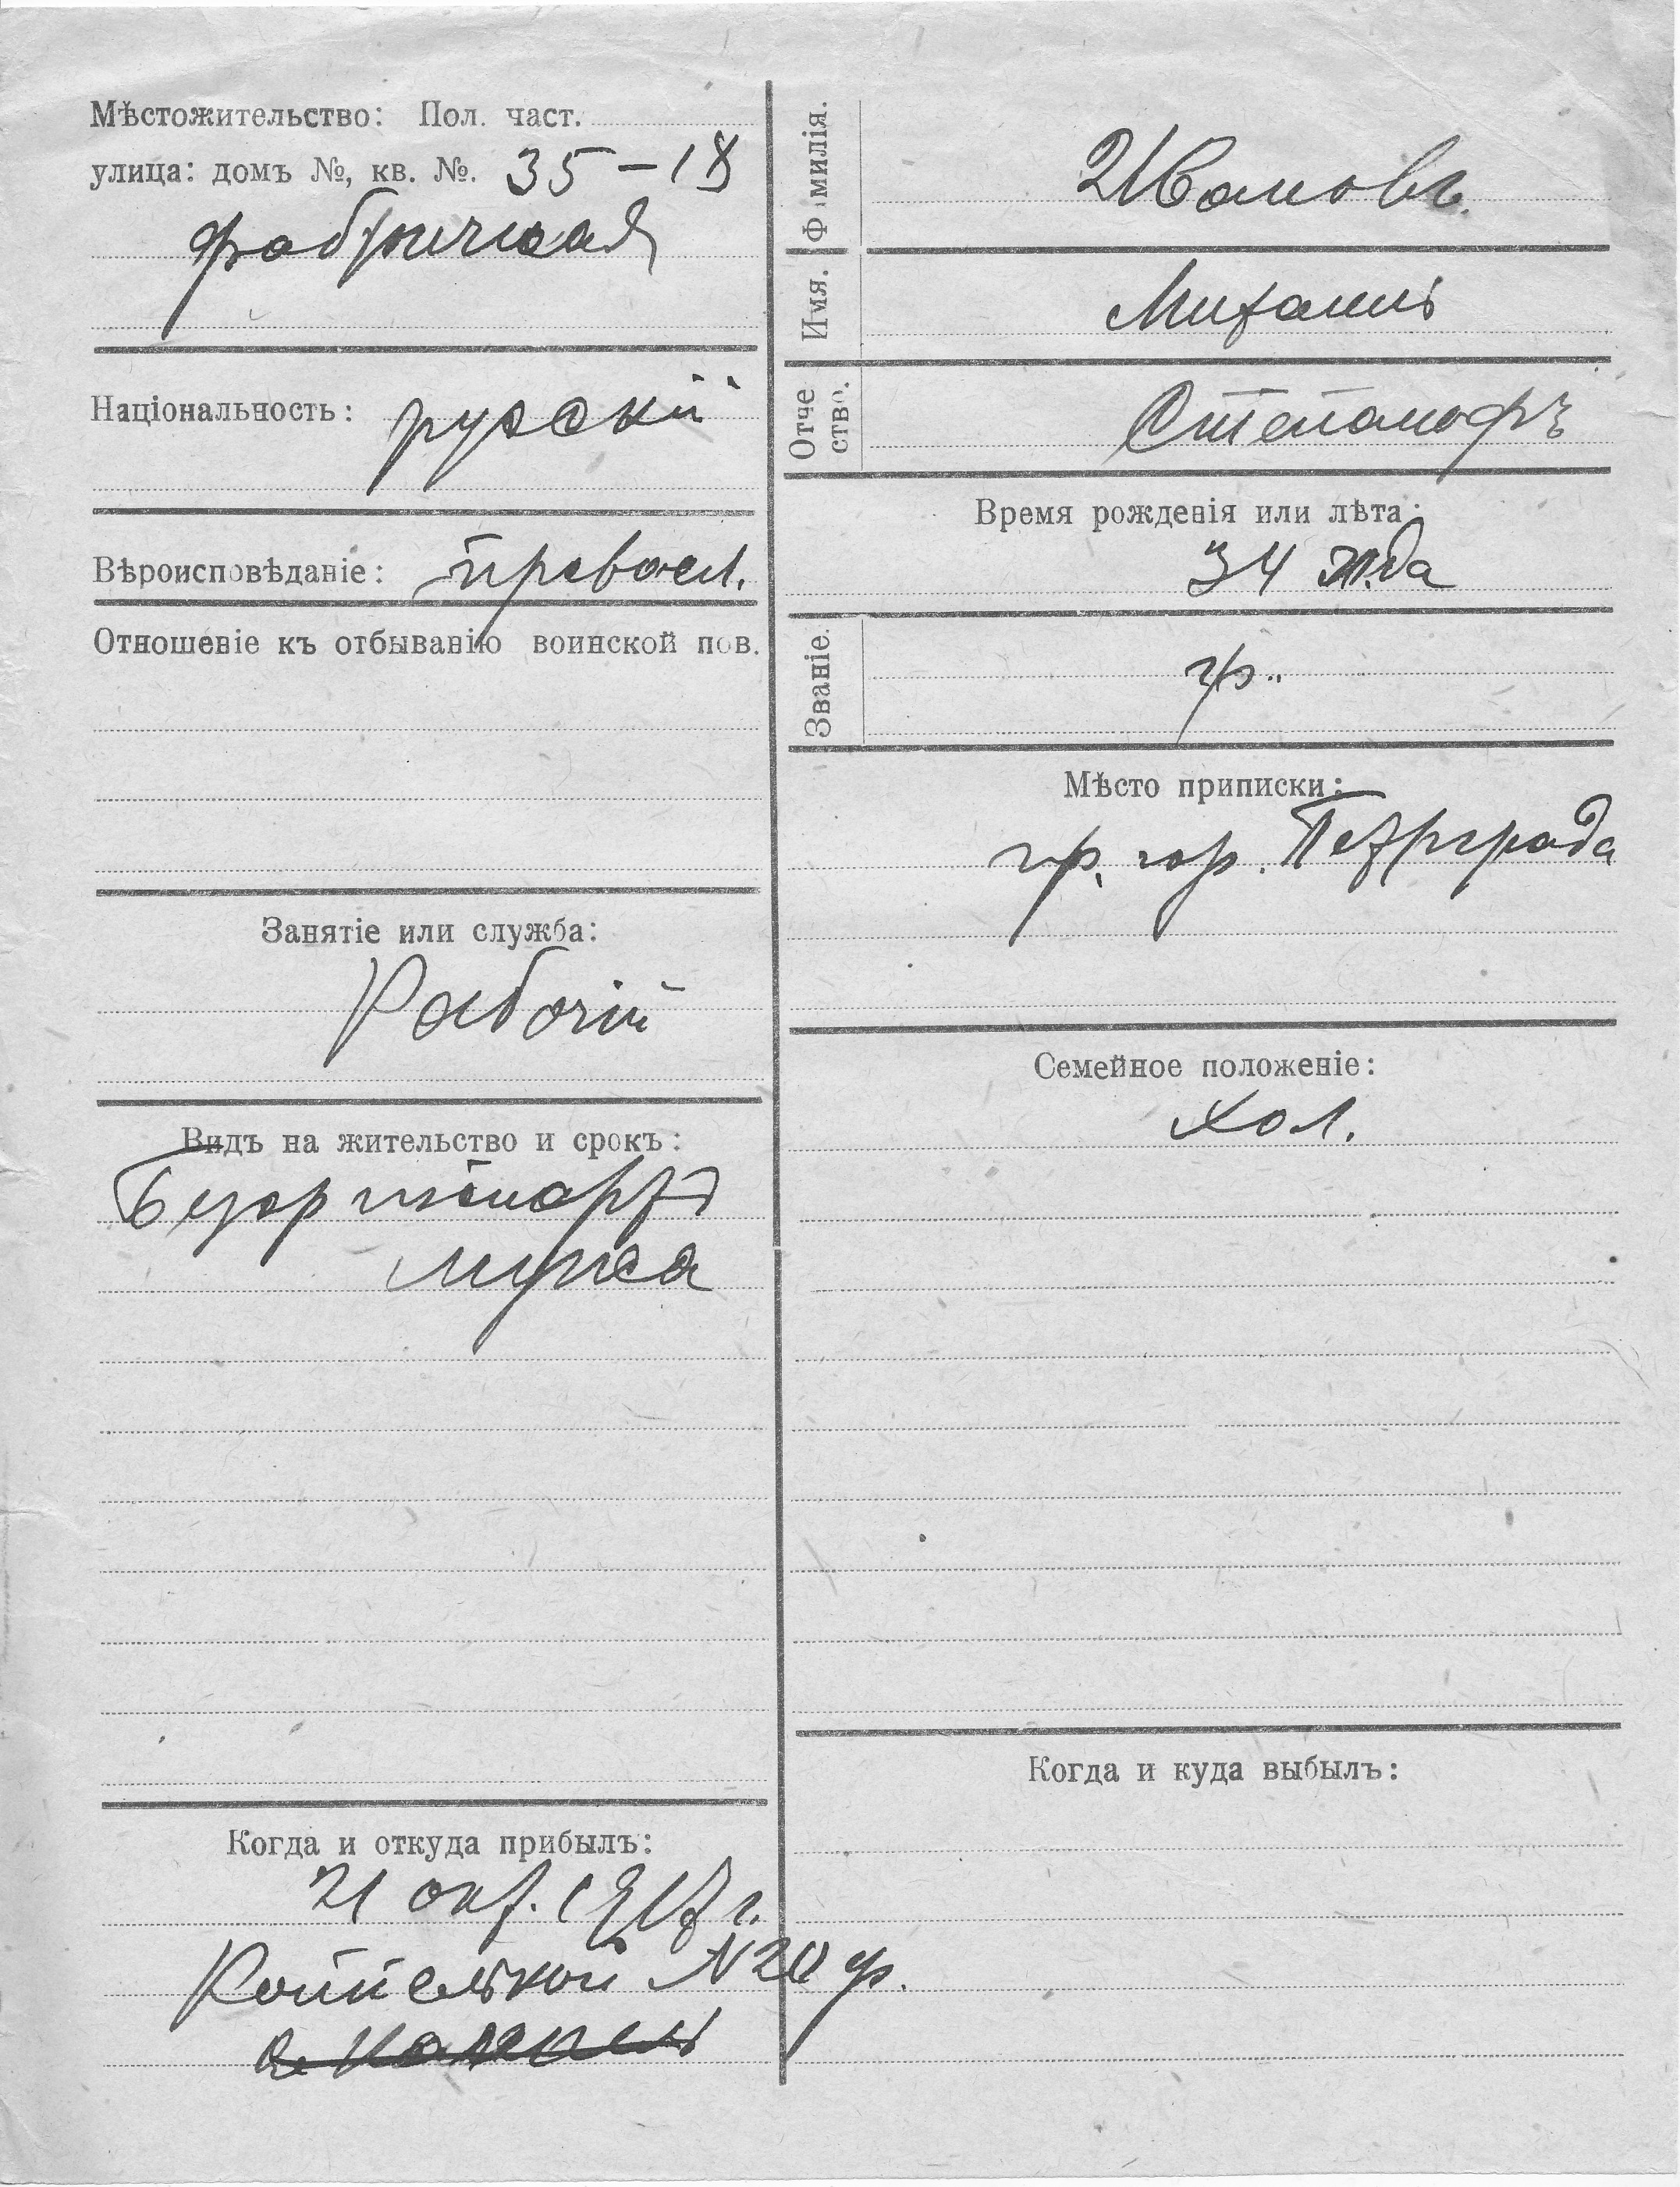 Мѣстожительство: Пол. част.
улица: домъ №, кв. №. 35-18
фабричная
Національность: русскій
Вѣроисповѣданіе: правосл.
Отношеніе къ отбыванію воинской пов.
Занятіе или служба:
Рабочій
Видъ на жительство и срокъ:
Когда и откуда прибылъ:
21 окт. 1917 г.
N 20 ф.
Фамилія. Ивановъ.
Имя. Михаилъ
Отче
ство. Степанофъ
Время рожденія или лѣта:
34 года
Званіе. гр.
Мѣсто приписки:
гр. гор. Петрграда
Семейное положеніе:
хол.
Когда и куда выбылъ: